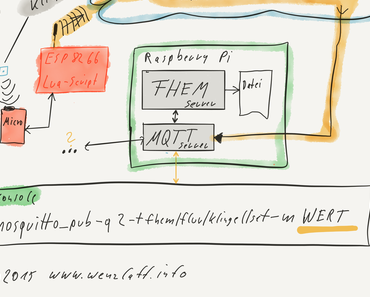 Raspberry Pi
ESP8266
Lua-Script
FHEM
Server
Datei
Micro
?
...
MQTT
Server
mosquitto_pub -q 2 -t fhem/flur/klingel/set -m WERT
2015 www.wenzlaff.info